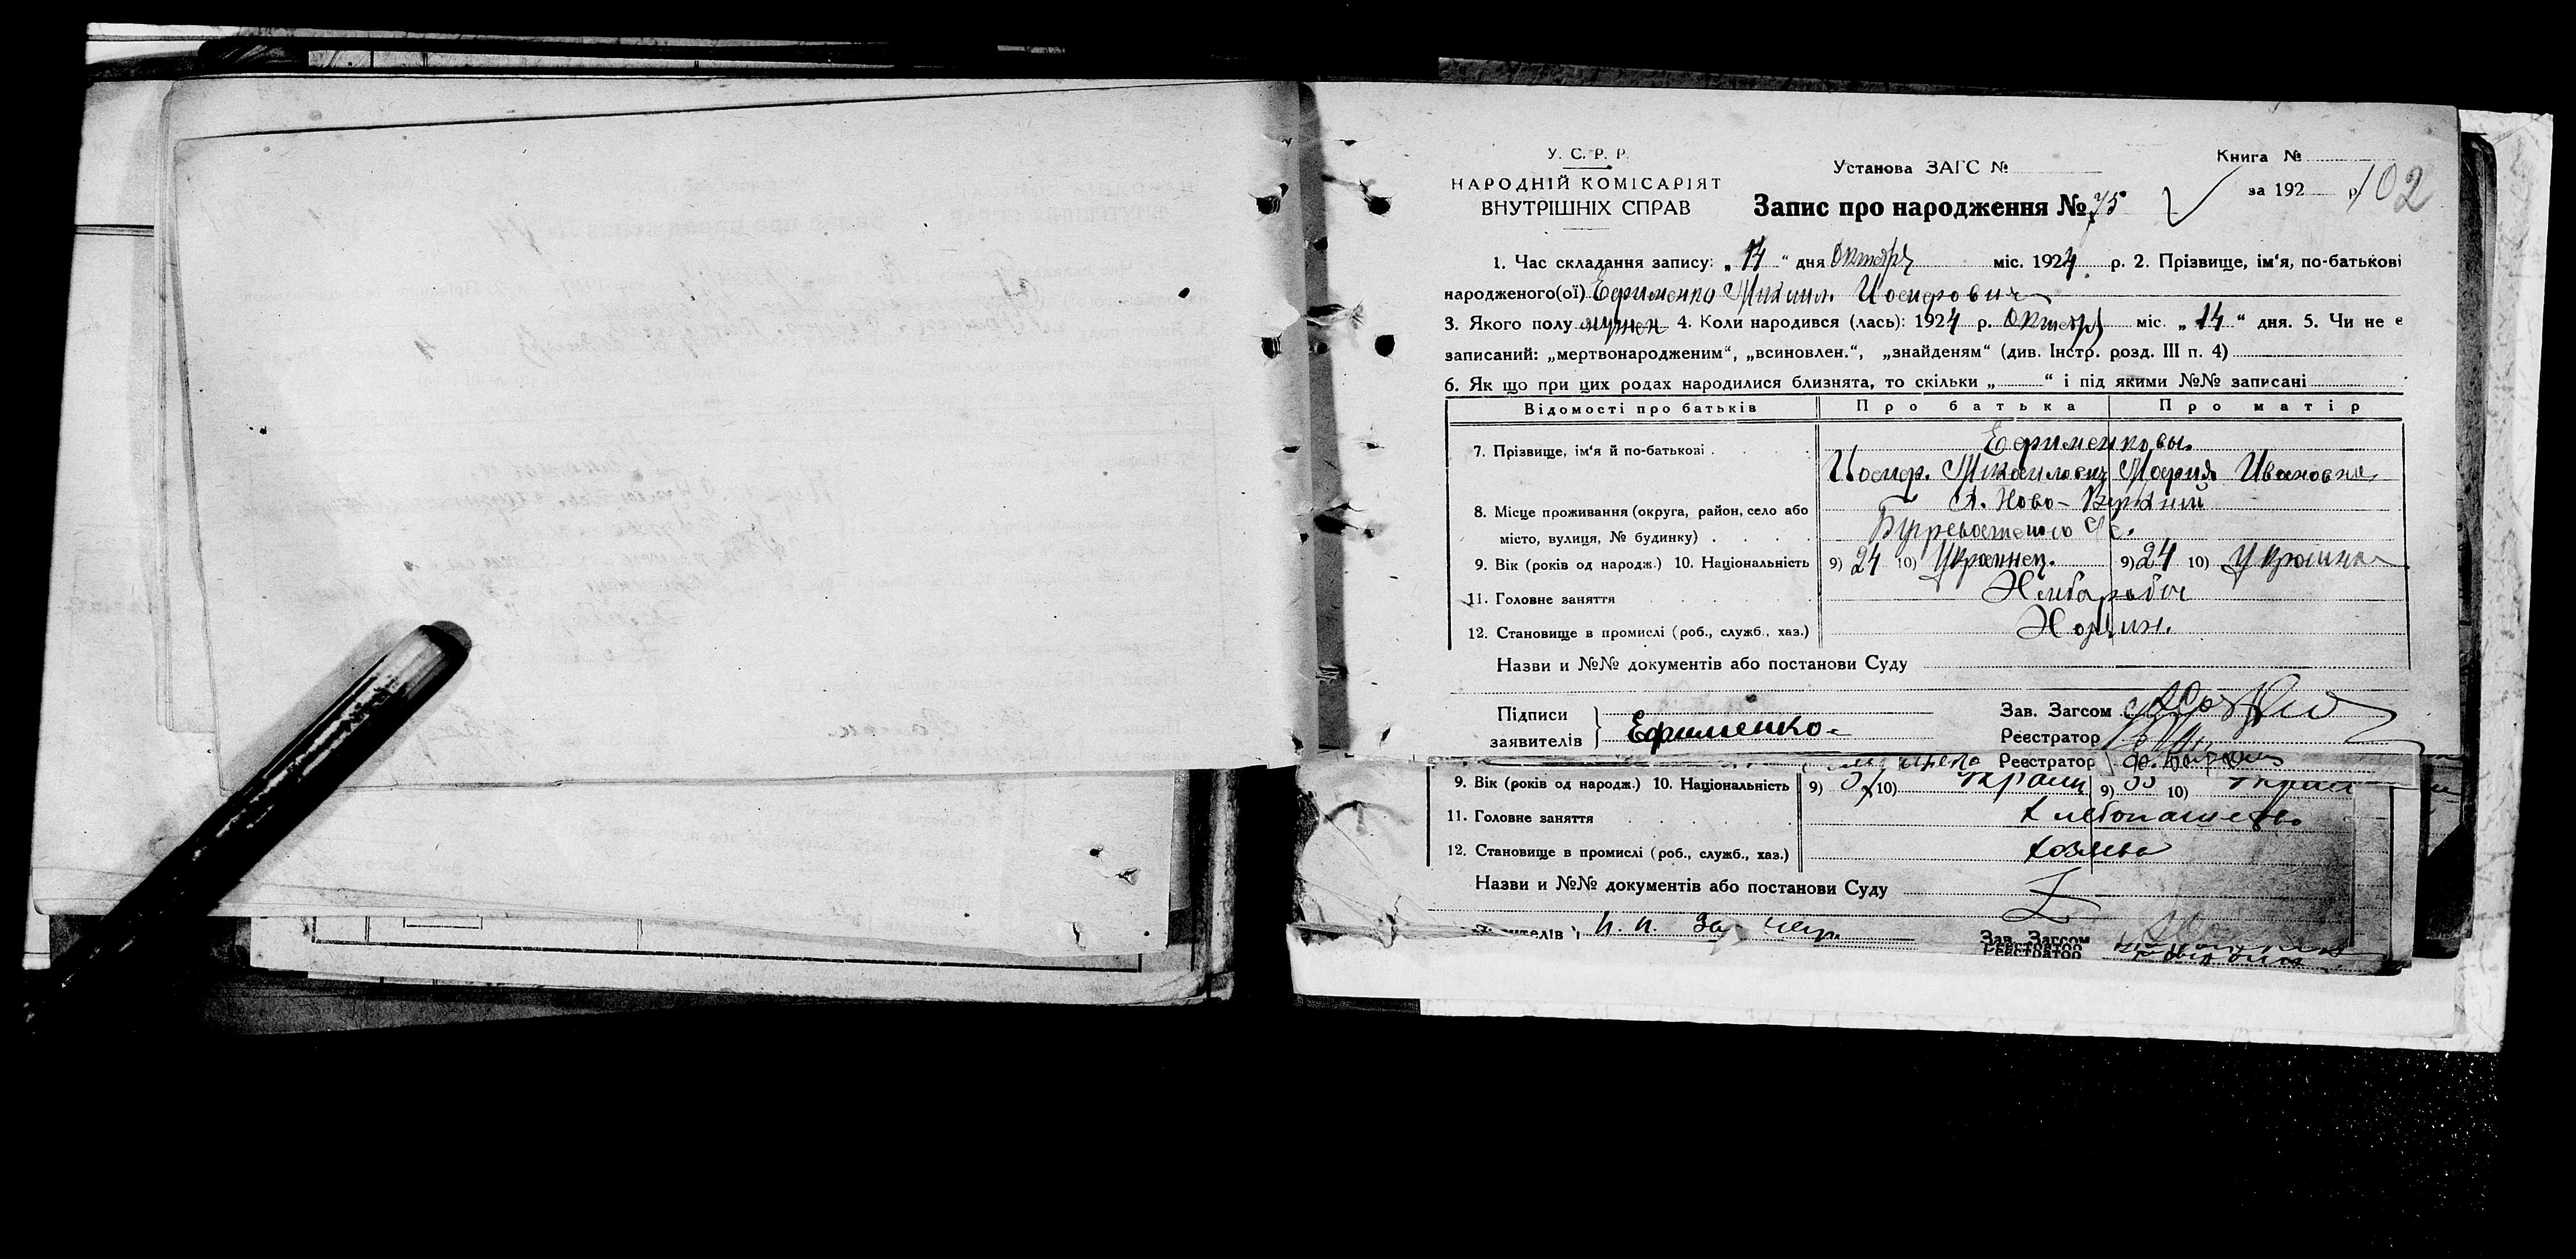 У. С. Р. Р.
НАРОДНІЙ КОМІСАРІЯТ
ВНУТРІШНІХ СПРАВ
Установа ЗАГС №
Запис про народження № 75
Книга №
за 192 р. 102
1. Час складання запису: „ 14 “ дня Октября міс. 1924 р. 2. Прізвище, ім‘я, по-батькові
народженого(ої) Ефименко Михаил Иосифович
3. Якого полу мужск 4. Коли народився (лась): 1924 р. Октября міс. „ 14 “ дня. 5. Чи не є
записаний: „мертвонародженим“, „всиновлен.“, „знайденям“ (див. Інстр. розд. III п. 4)
6. Як що при цих родах народилися близнята, то скільки „ “ і під якими №№ записані
Відомості про батьків Про батька Про матір
7. Прізвище, ім‘я й по-батькові Ефименковы
Иосиф. Михайлович Мария Ивановна
8. Місце проживання (округа, район, село або Х. Ново-Верхний
місто, вулиця, № будинку)
9. Вік (років од народж.) 10. Національність 9) 24 10) Украинец. 9) 24 10) Украинка
11. Головне заняття Хлебороб
12. Становище в промислі (роб., служб., хаз.) Хозяин.
Назви и №№ документів або постанови Суду
Підписи
заявителів Ефименко
Зав. Загсом
Реєстратор
Реєстратор
9. Вік (років од народж.) 10. Національність 9) 10) Украин 9) 10) Украин
11. Головне заняття Хлебопашество
12. Становище в промислі (роб., служб., хаз.) хозяева
Назви и №№ документів або постанови Суду
Зав. Загсом
Реєстратор